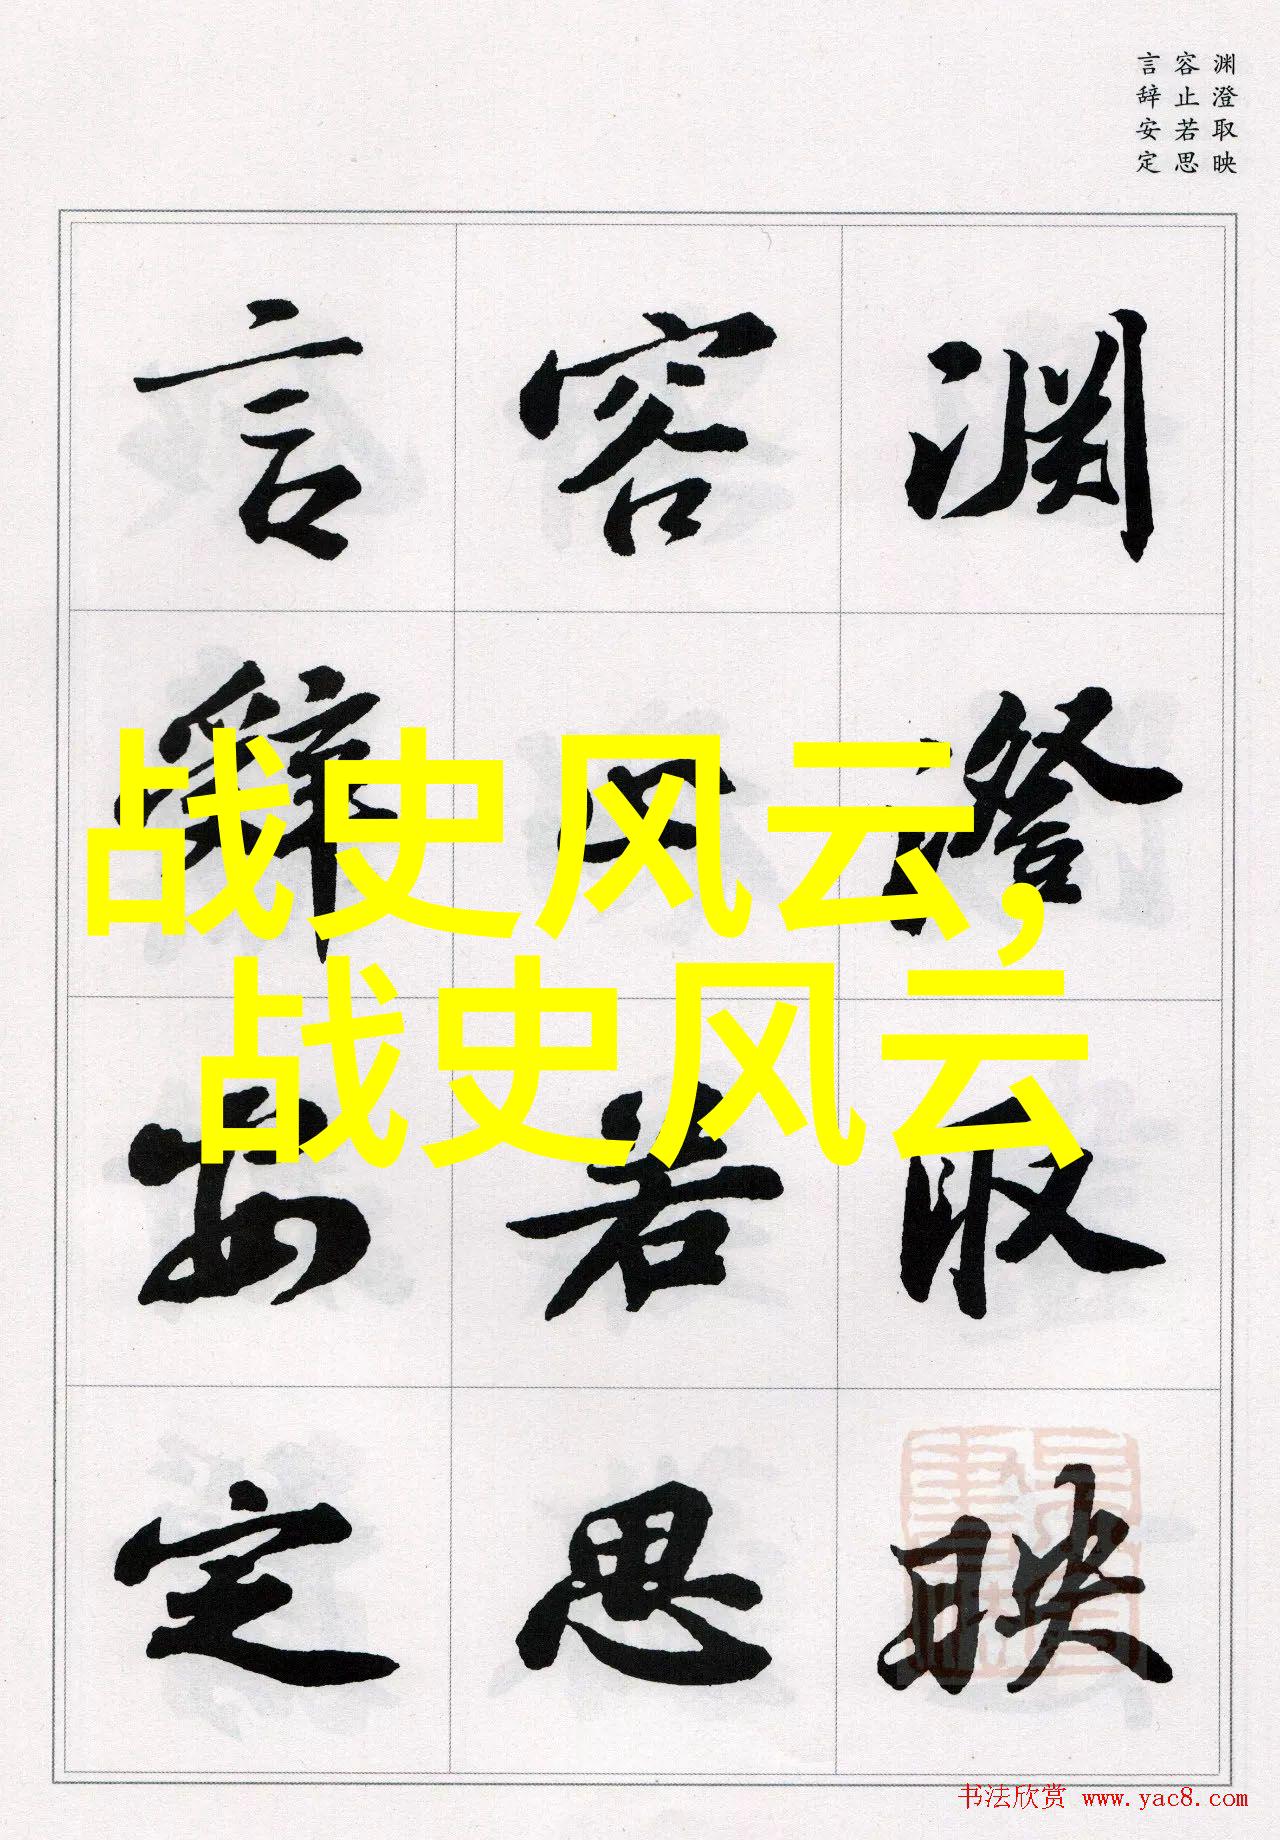 渊澄取映
容止若思
言辞安定
渊澄取映
容止若思
言辞安定
战史风云,
战史风云
书法欣赏 www.yac8.com